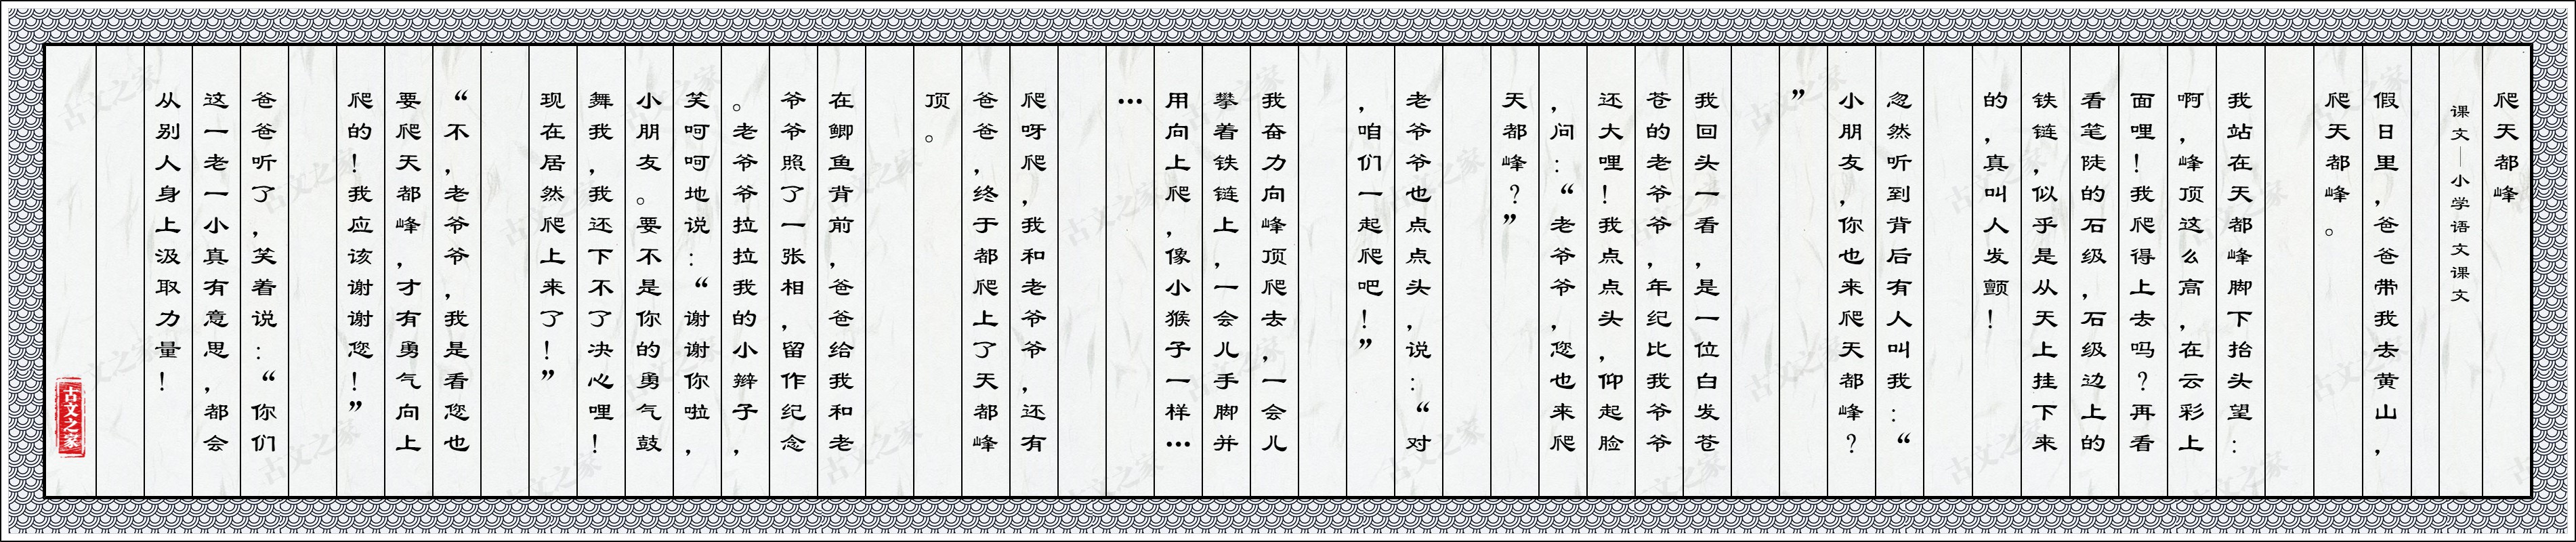 爬天都峰
课文—小学语文课文
假日里，爸爸带我去黄山，
爬天都峰。
我站在天都峰脚下抬头望：
啊，峰顶这么高，在云彩上
面哩！我爬得上去吗？再看
看笔陡的石级，石级边上的
铁链，似乎是从天上挂下来
的，真叫人发颤！
忽然听到背后有人叫我：“
小朋友，你也来爬天都峰？
”
我回头一看，是一位白发苍
苍的老爷爷，年纪比我爷爷
还大哩！我点点头，仰起脸
，问：“老爷爷，您也来爬
天都峰？”
老爷爷也点点头，说：“对
，咱们一起爬吧！”
我奋力向峰顶爬去，一会儿
攀着铁链上，一会儿手脚并
用向上爬，像小猴子一样…
…
爬呀爬，我和老爷爷，还有
爸爸，终于都爬上了天都峰
顶。
在鲫鱼背前，爸爸给我和老
爷爷照了一张相，留作纪念
。老爷爷拉拉我的小辫子，
笑呵呵地说：“谢谢你啦，
小朋友。要不是你的勇气鼓
舞我，我还下不了决心哩！
现在居然爬上来了！”
“不，老爷爷，我是看您也
要爬天都峰，才有勇气向上
爬的！我应该谢谢您！”
爸爸听了，笑着说：“你们
这一老一小真有意思，都会
从别人身上汲取力量！
古文之家